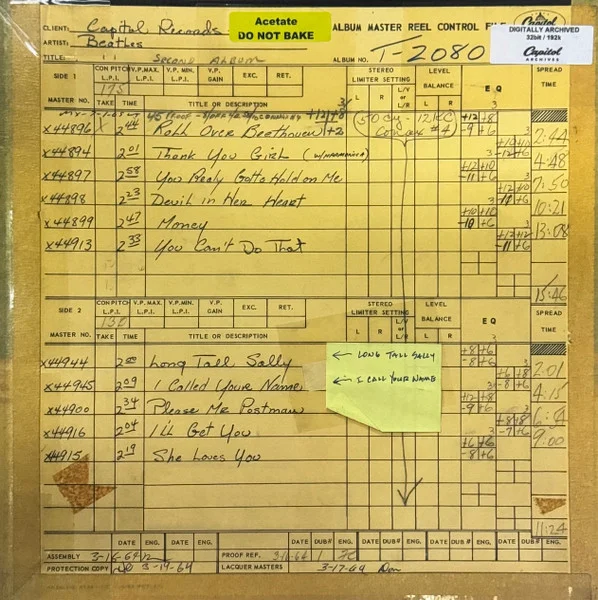 CLIENT: Capitol Records
Acetate
DO NOT BAKE
ALBUM MASTER REEL CONTROL FILE
Capitol
DIGITALLY ARCHIVED
32bit / 192k
Capitol
ARCHIVES
ARTIST: Beatles
TITLE: " " SECOND ALBUM
ALBUM NO. T-2080
SIDE 1 CON PITCH V.P. MAX. V.P. MIN. V.P. EXC. RET. STEREO LIMITER SETTING LEVEL BALANCE EQ SPREAD TIME
L.P.I. L.P.I. L.P.I. GAIN L R L/V L/R L R
175
MASTER NO. TAKE TIME TITLE OR DESCRIPTION
X44896 X 2 44 Roll Over Beethoven +2 50 cy - 12 KC +12 +8 -9 +6 2:44
X44894 2 01 Thank You Girl (W/HARMONICA) 3 4:48
X44897 2 58 You Realy Gotta Hold on Me +12 +10 -11 +6 7:50
X44898 2 23 Devil in Her Heart 3 +12 +10 10:21
X44899 2 47 Money 3 +10 +10 -10 +6 13:08
X44913 2 33 You Can't Do That 3 +12 +12 -11 +6
15:46
SIDE 2 CON PITCH V.P. MAX. V.P. MIN. V.P. EXC. RET. STEREO LIMITER SETTING LEVEL BALANCE EQ SPREAD TIME
L.P.I. L.P.I. L.P.I. GAIN L R L/V L/R L R
MASTER NO. TAKE TIME TITLE OR DESCRIPTION
X44944 Long Tall Sally ← LONG TALL SALLY +8 +6 -8 +6 2:01
X44945 2 09 I Called Your Name ← I CALL YOUR NAME 3 +6 +8 -8 +6 4:15
X44900 2 34 Please Mr Postman 3 +12 +8 -9 +6
X44916 2 04 I'll Get You 3 +8 +8 -7 +6 9:00
X44915 2 19 She Loves You 3 +6 +6 -8 +6
11:24
DATE ENG. DATE ENG. DATE DUB# ENG. DATE DUB# ENG. DATE DUB# ENG.
ASSEMBLY 3-16-64 PROOF REP. 1
PROTECTION COPY 3-19-64 LACQUER MASTERS 3-17-64 Don